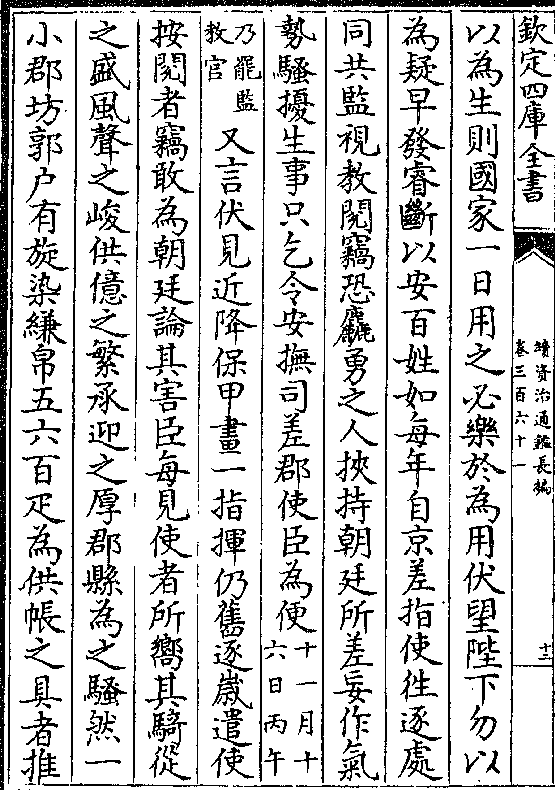 欽定四庫全書
續資治通鑑長編
卷三百六十一
十三
以為生則國家一日用之必樂於為用伏望陛下勿以
為疑早發睿斷以安百姓如每年自京差指使徃逐處
同共監視教閱竊恐麤勇之人挾持朝廷所差妄作氣
勢騷擾生事只乞令安撫司差郡使臣為便十一月十
六日丙午
乃罷監
教官又言伏見近降保甲畫一指揮仍舊逐嵗遣使
按閱者竊敢為朝廷論其害臣每見使者所嚮其騎從
之盛風聲之峻供億之繁承迎之厚郡縣為之騷然一
小郡坊郭户有旋染縑帛五六百疋為供帳之具者推